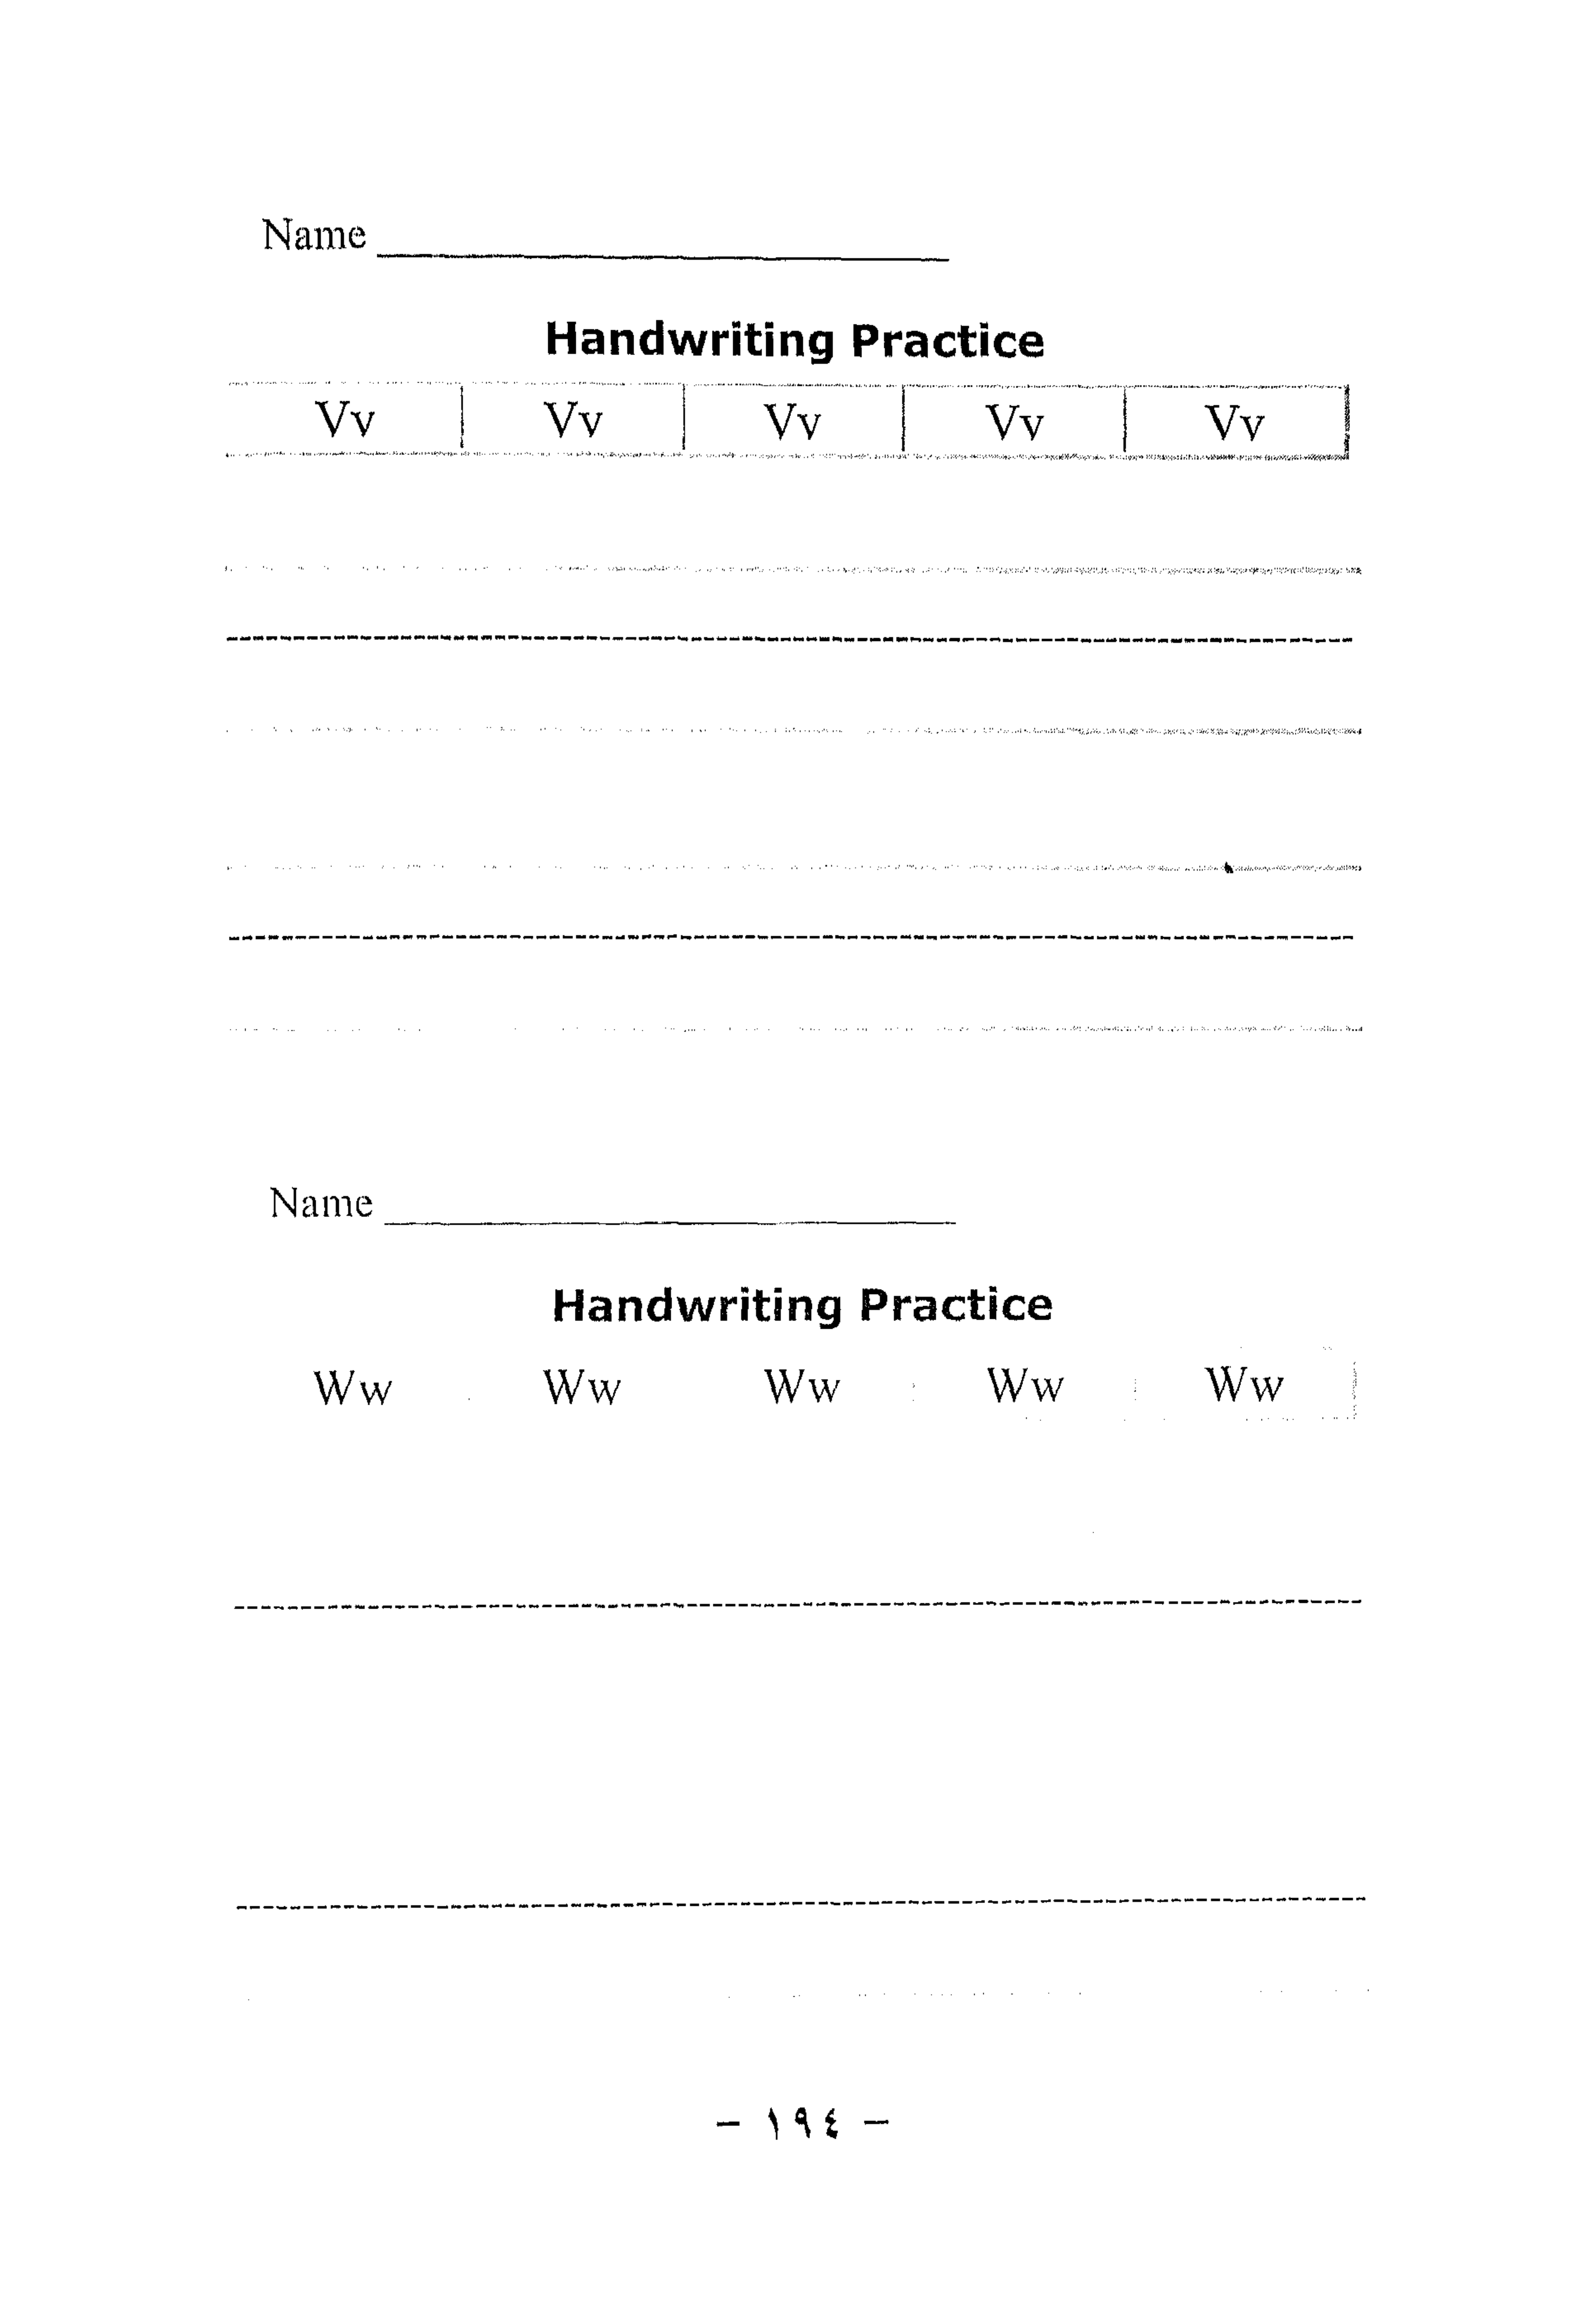 Name
Handwriting Practice
Vv Vv Vv Vv Vv
Name
Handwriting Practice
Ww Ww Ww Ww Ww
- ١٩٤ -